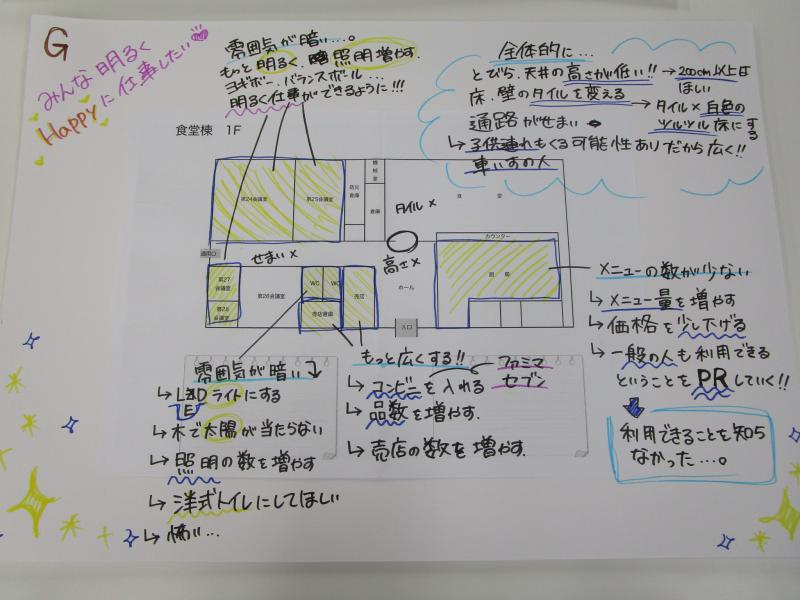 G
みんな明るく
Happyに仕事したい
雰囲気が暗い…。
もっと明るく、照明増やす。
ヨギボー、バランスボール…
明るく仕事ができるように!!!
全体的に…
とびら、天井の高さが低い!!→200cm以上は
ほしい
床、壁のタイルを変える→タイル×白色の
ツルツル床にする
通路がせまい
↳子供連れもくる可能性ありだから広く!!
車いすの人
食堂棟 1F
第24会議室
第25会議室
防災倉庫
機械室
倉庫
タイル×
食堂
カウンター
通用口
せまい×
高さ×
第27会議室
第28会議室
第26会議室
WC
WC
売店
売店倉庫
ホール
厨房
入口
メニューの数が少ない
↳メニュー量を増やす
↳価格を少し下げる
↳一般の人も利用できる
ということをPRしていく!!
利用できることを知ら
なかった…。
雰囲気が暗い
↳LEDライトにする
↳木で太陽が当たらない
↳照明の数を増やす
↳洋式トイレにしてほしい
↳怖い…
もっと広くする!!
↳コンビニを入れる
ファミマ
セブン
↳品数を増やす.
↳売店の数を増やす.